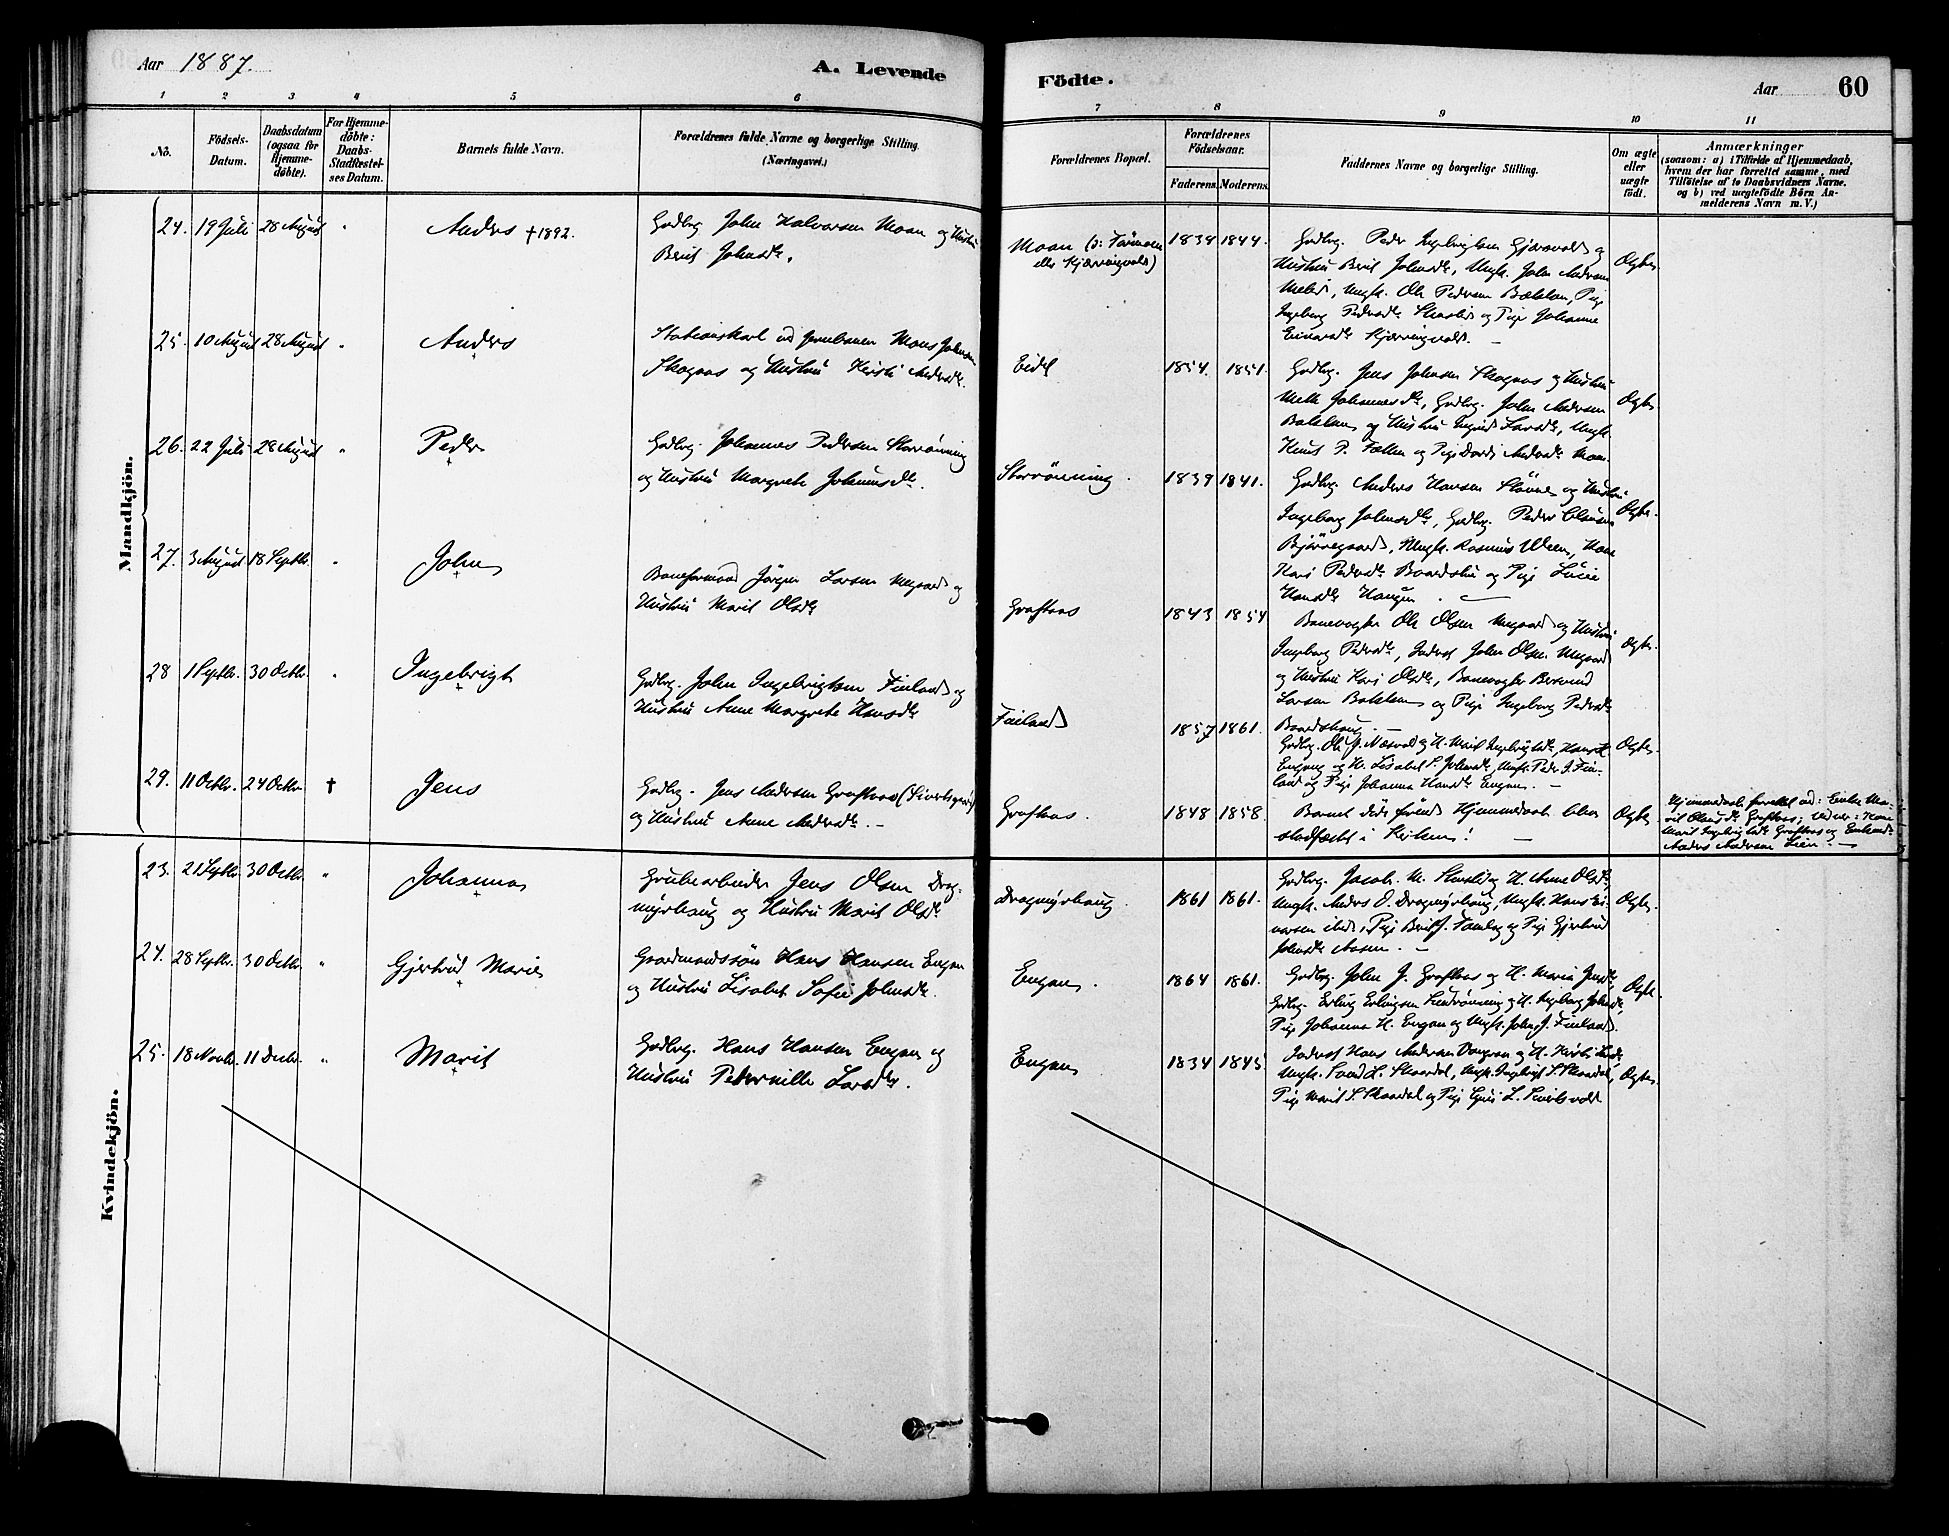 Aar 1887.
A. Levende
Födte.
Aar
60
1 2 3 4 5 6 7 8 9 10 11
No.
Födsels-
Datum.
Daabsdatum
(ogsaa for
Hjemme-
døbte).
For Hjemme-
døbte:
Daabs-
Stadfæstel-
ses Datum.
Barnets fulde Navn.
Forældrenes fulde Navne og borgerlige Stilling.
(Næringsvei.)
Forældrenes Bopæl.
Forældrenes
Födselsaar.
Faderens. Moderens.
Faddernes Navne og borgerlige Stilling.
Om ægte
eller
uægte
født.
Anmærkninger
(saasom: a) i Tilfælde af Hjemmedaab,
hvem der har forrettet samme, med
Tilføielse af to Daabsvidners Navne,
og b) ved uægtefödte Börn An-
melderens Navn m. V.)
Mandkjön.
24. 19 Juli 28 August " Anders † 1892.
Gbdbrg. John Halvorsen Moan og Hustru
Berit Johnsdr.
Moan
eller Kjærringvold)
1839 1844.
Gbdbrg. Peder Ingebrigtsen Gjærevold og
Hustru Berit Johnsdr, Ungk. John Andersen
Ungk. Ole Pedersen Pige
Ingeborg Pedersdr og Pige Johanne
Einarsdr Kjærringvold. —
Ægte.
25. 10 August 28 August " Anders
Stationskarl ved Jernbanen Mons Johnsen
Skogaas og Hustru Kirsti Andersdr.
Eidet
1854. 1851.
Gbdbrg. Jens Johnsen Skogaas og Hustru
Johannesdr, Gbdbrg. John Andersen
og Hustru Ingrid Larsdr, Ungk.
Knut P. og Pige Dordi Andersdr
Ægte
26. 22 Juli 28 August " Peder
Gbdbrg. Johannes Pedersen Storrönning
og Hustru Margrete Johnsdr.
Storrönning.
1839 1841.
Gbdbrg. Anders Hansen og Hustru
Ingeborg Johnsdr, Gbdbrg. Peder
Bjørgaard, Ungk. Rasmus Kone
Kari Pedersdr og Pige
Hansdr Haugen. —
Ægte.
27. 3 August 18 Septbr. " John
Baneformand Jörgen Larsen Megaard og
Hustru Marit Olsdr
Graftaas
1843 1854
Banevogter Ole Olsen Megaard og Hustru
Ingeborg Pedersdr, Inderst John Olsen Megaard
og Hustru Kari Olsdr, Banevogter
Larsen og Pige Ingeborg Pedersdr
—
Ægte.
28 1 Septbr. 30 Octbr. " Ingebrigt
Gbdbrg. John Ingebrigtsen Finland og
Hustru Anne Margrete Hansdr
Finland
1857 1861.
Gbdbrg. Ole J. Næsvold og H. Marit Ingebrigtsdr, Hans H.
Engan og H. Lisabet S. Johnsdr, Ungk. Peder J. Fin-
land og Pige Johanna Hansdr Engan. —
Ægte.
29. 11 Octbr. 24 Octbr. † Jens
Gbdbrg. Jens Andersen Graftaas
og Hustru Anne Andersdr. —
Graftaas.
1848 1858.
Barnet döde förend Hjemmedaab blev
stadfæstet i Kirken! —
Ægte
Hjemmedaab forrettet ved: Enke Ma-
rit Graftaas; Vidner: Kone
Marit Ingebrigtsdr Graftaas og Enkemd.
Anders Andersen Lien. —
Kvindekjön.
23. 21 Septbr. 30 Octbr. " Johanna
Grubearbeider Jens Olsen Drag-
myrhaug og Hustru Marit Olsdr
Dragmyrhaug.
1861 1861.
Gbdbrg. Jacob M. og H. Anne Olsdr,
Ungk. Anders O. Dragmyrhaug, Ungk. Hans Ei-
narsen ibid., Pige Berit J. og Pige Gjertrud
Johnsdr Aasen. —
Ægte.
24. 28 Septbr. 30 Octbr. " Gjertrud Marie
Gaardmandssön Hans Hansen Engan
og Hustru Lisabet Sofie Johnsdr.
Engan.
1864 1861.
Gbdbrg. John J. Graftaas og H. Maria Jensdr,
Gbdbrg. Erling Erlingsen og H. Ingeborg Johnsdr,
Pige Johanna H. Engan og Ungk. John J. Finland.
Ægte.
25. 18 Novbr. 11 Decbr. " Marit
Gbdbrg. Hans Hansen Engan og
Hustru Pedernille Larsdr.
Engan
1834 1845
Inderst Hans Andersen og H. Kirsti
Ungk. L. Skaardal, Ungk. Ingebrigt L. Skaardal,
Pige Marit L. Skaardal og Pige Guri L.
Ægte.